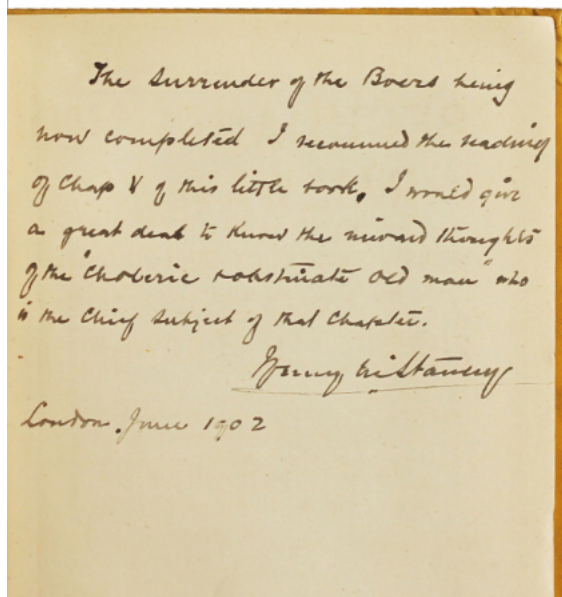 The surrender of the Boers being
now completed I recommend the reading
of Chap V of this little book. I would give
a great deal to know the inward thoughts
of the "choleric & obstinate old man" who
is the chief subject of that Chapter.
Henry M. Stanley
London. June 1902